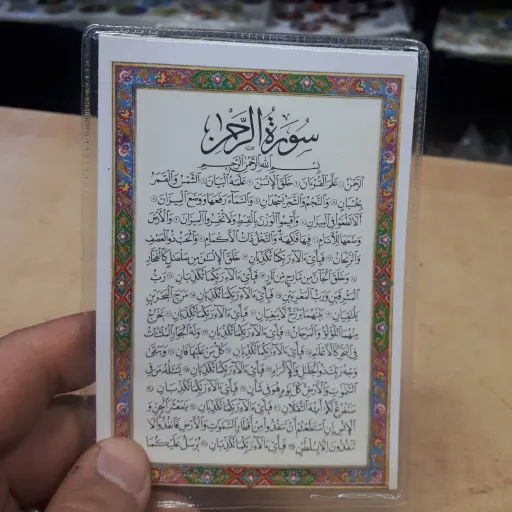 سورة الرحمن
بسم الله الرحمن الرحيم
الرحمن علم القرءان خلق الإنسن علمه البيان الشمس والقمر
بحسبان والنجم والشجر يسجدان والسماء رفعها ووضع الميزان
ألا تطغوا في الميزان وأقيموا الوزن بالقسط ولا تخسروا الميزان والأرض
وضعها للأنام فيها فكهة والنخل ذات الأكمام والحب ذو العصف
والريحان فبأي ءالاء ربكما تكذبان خلق الإنسن من صلصل كالفخار
وخلق الجان من مارج من نار فبأي ءالاء ربكما تكذبان رب
المشرقين ورب المغربين فبأي ءالاء ربكما تكذبان مرج البحرين
يلتقيان بينهما برزخ لا يبغيان فبأي ءالاء ربكما تكذبان يخرج
منهما اللؤلؤ والمرجان فبأي ءالاء ربكما تكذبان وله الجوار المنشئات
في البحر كالأعلم فبأي ءالاء ربكما تكذبان كل من عليها فان ويبقى
وجه ربك ذو الجلل والإكرام فبأي ءالاء ربكما تكذبان يسئله من في
السموت والأرض كل يوم هو في شأن فبأي ءالاء ربكما تكذبان
سنفرغ لكم أيه الثقلان فبأي ءالاء ربكما تكذبان يمعشر الجن و
الإنس إن استطعتم أن تنفذوا من أقطار السموت والأرض فانفذوا لا
تنفذون إلا بسلطن فبأي ءالاء ربكما تكذبان يرسل عليكما